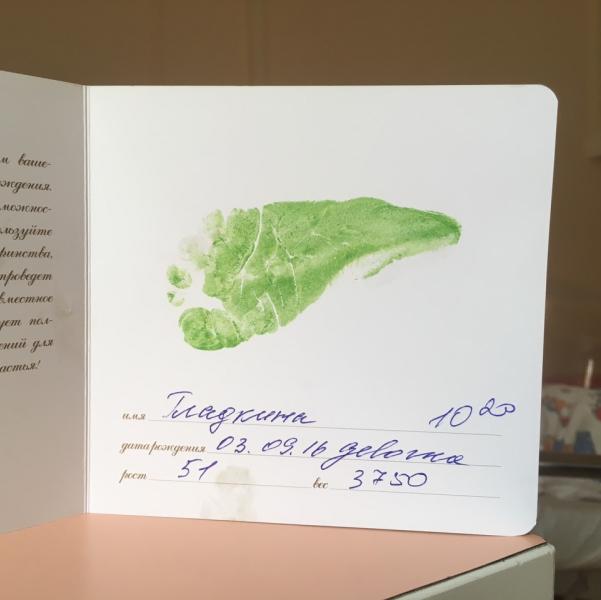 м ваше-
ждения.
можнос-
льзуйте
ринства,
проведет
вместное
ует пол-
ений для
астья!
имя Гладкина 10 20
дата рождения 03.09.16 девочка
рост 51 вес 3750